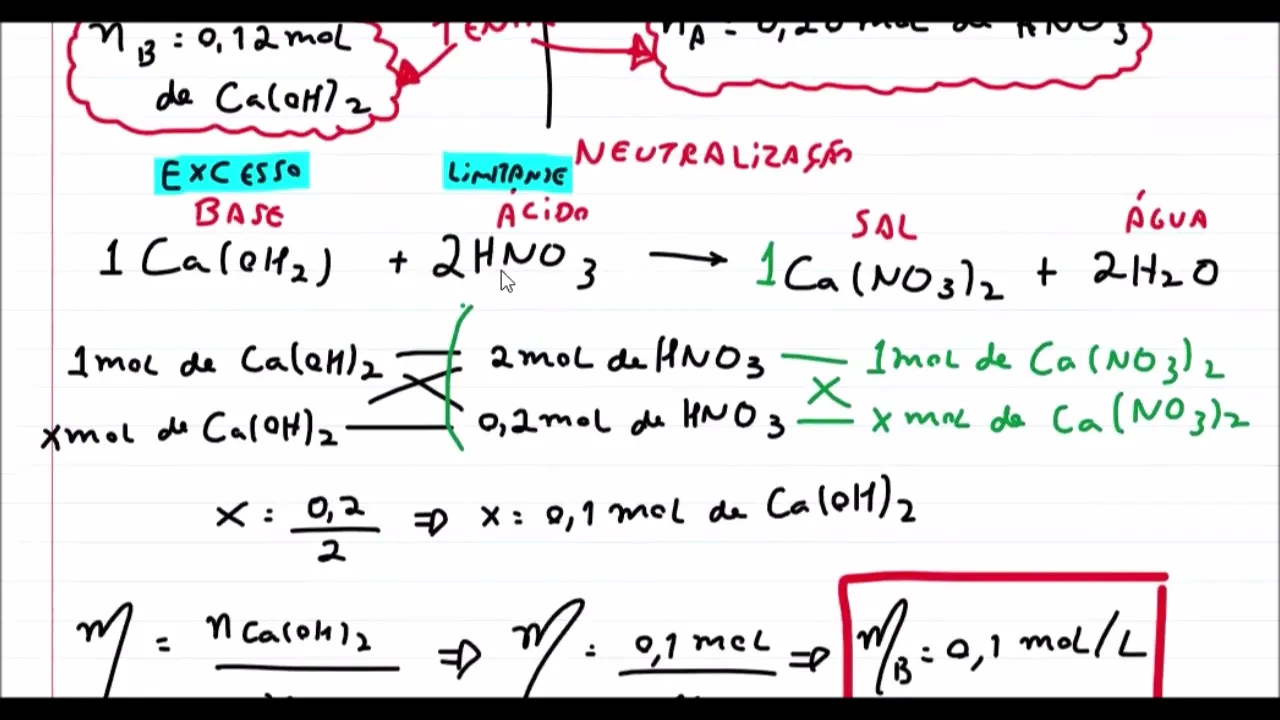 n_B = 0,12 mol
de Ca(OH)2
TENH
n_A = 0,20 mol de HNO3
NEUTRALIZAÇÃO
EXCESSO LIMITANTE
BASE ÁCIDO SAL ÁGUA
1Ca(OH2) + 2HNO3 → 1Ca(NO3)2 + 2H2O
1mol de Ca(OH)2 2mol de HNO3 1mol de Ca(NO3)2
x mol de Ca(OH)2 0,2mol de HNO3 x mol de Ca(NO3)2
x = 0,2/2 ⇒ x = 0,1 mol de Ca(OH)2
M = nCa(OH)2 ⇒ M = 0,1 mol ⇒ M_B = 0,1 mol/L